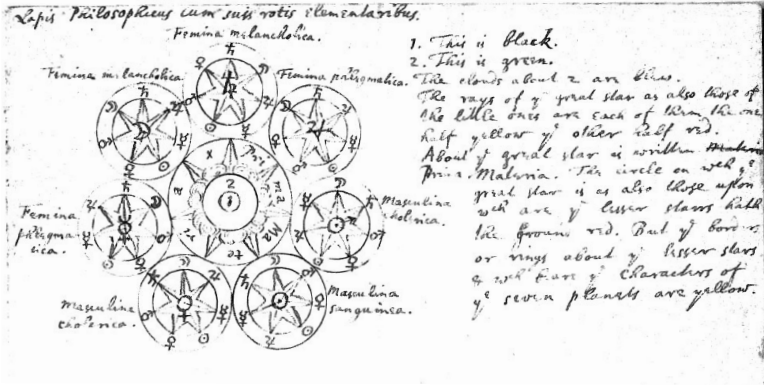 Lapis Philosophicus cum suis rotis elementaribus.
Femina melancholica.
Femina melancholica
Femina phlegmatica.
Femina
phlegma
tica.
Masculina
cholerica.
Masculina
cholerica.
Masculina
sanguinea.
x pri ma Ma te ri a
2
1
1. This is black.
2. This is green.
The clouds about 2 are blew.
The rays of yᵉ great star as also those of
the little ones are each of them the one
half yellow yᵉ other half red.
About yᵉ great star is written
prima Materia. The circle on wᶜʰ yᵉ
great star is as also those upon
wᶜʰ are yᵉ lesser starrs hath
the ground red. But yᵉ borders
or rings about yᵉ lesser stars
& wᶜʰ beare yᵉ characters of
yᵉ seven planets are yellow.